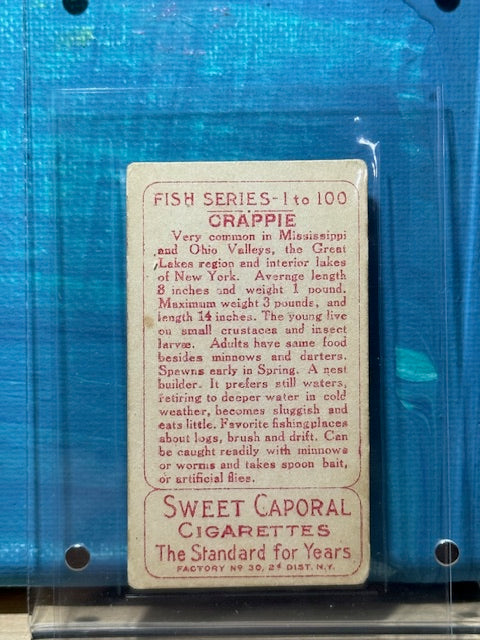 FISH SERIES-1 to 100
CRAPPIE
Very common in Mississippi
and Ohio Valleys, the Great
Lakes region and interior lakes
of New York. Average length
8 inches and weight 1 pound.
Maximum weight 3 pounds, and
length 14 inches. The young live
on small crustacea and insect
larvæ. Adults have same food
besides minnows and darters.
Spawns early in Spring. A nest
builder. It prefers still waters,
retiring to deeper water in cold
weather, becomes sluggish and
eats little. Favorite fishing places
about logs, brush and drift. Can
be caught readily with minnows
or worms and takes spoon bait,
or artificial flies.
SWEET CAPORAL
CIGARETTES
The Standard for Years
FACTORY Nº 30, 2ᵈ DIST. N.Y.